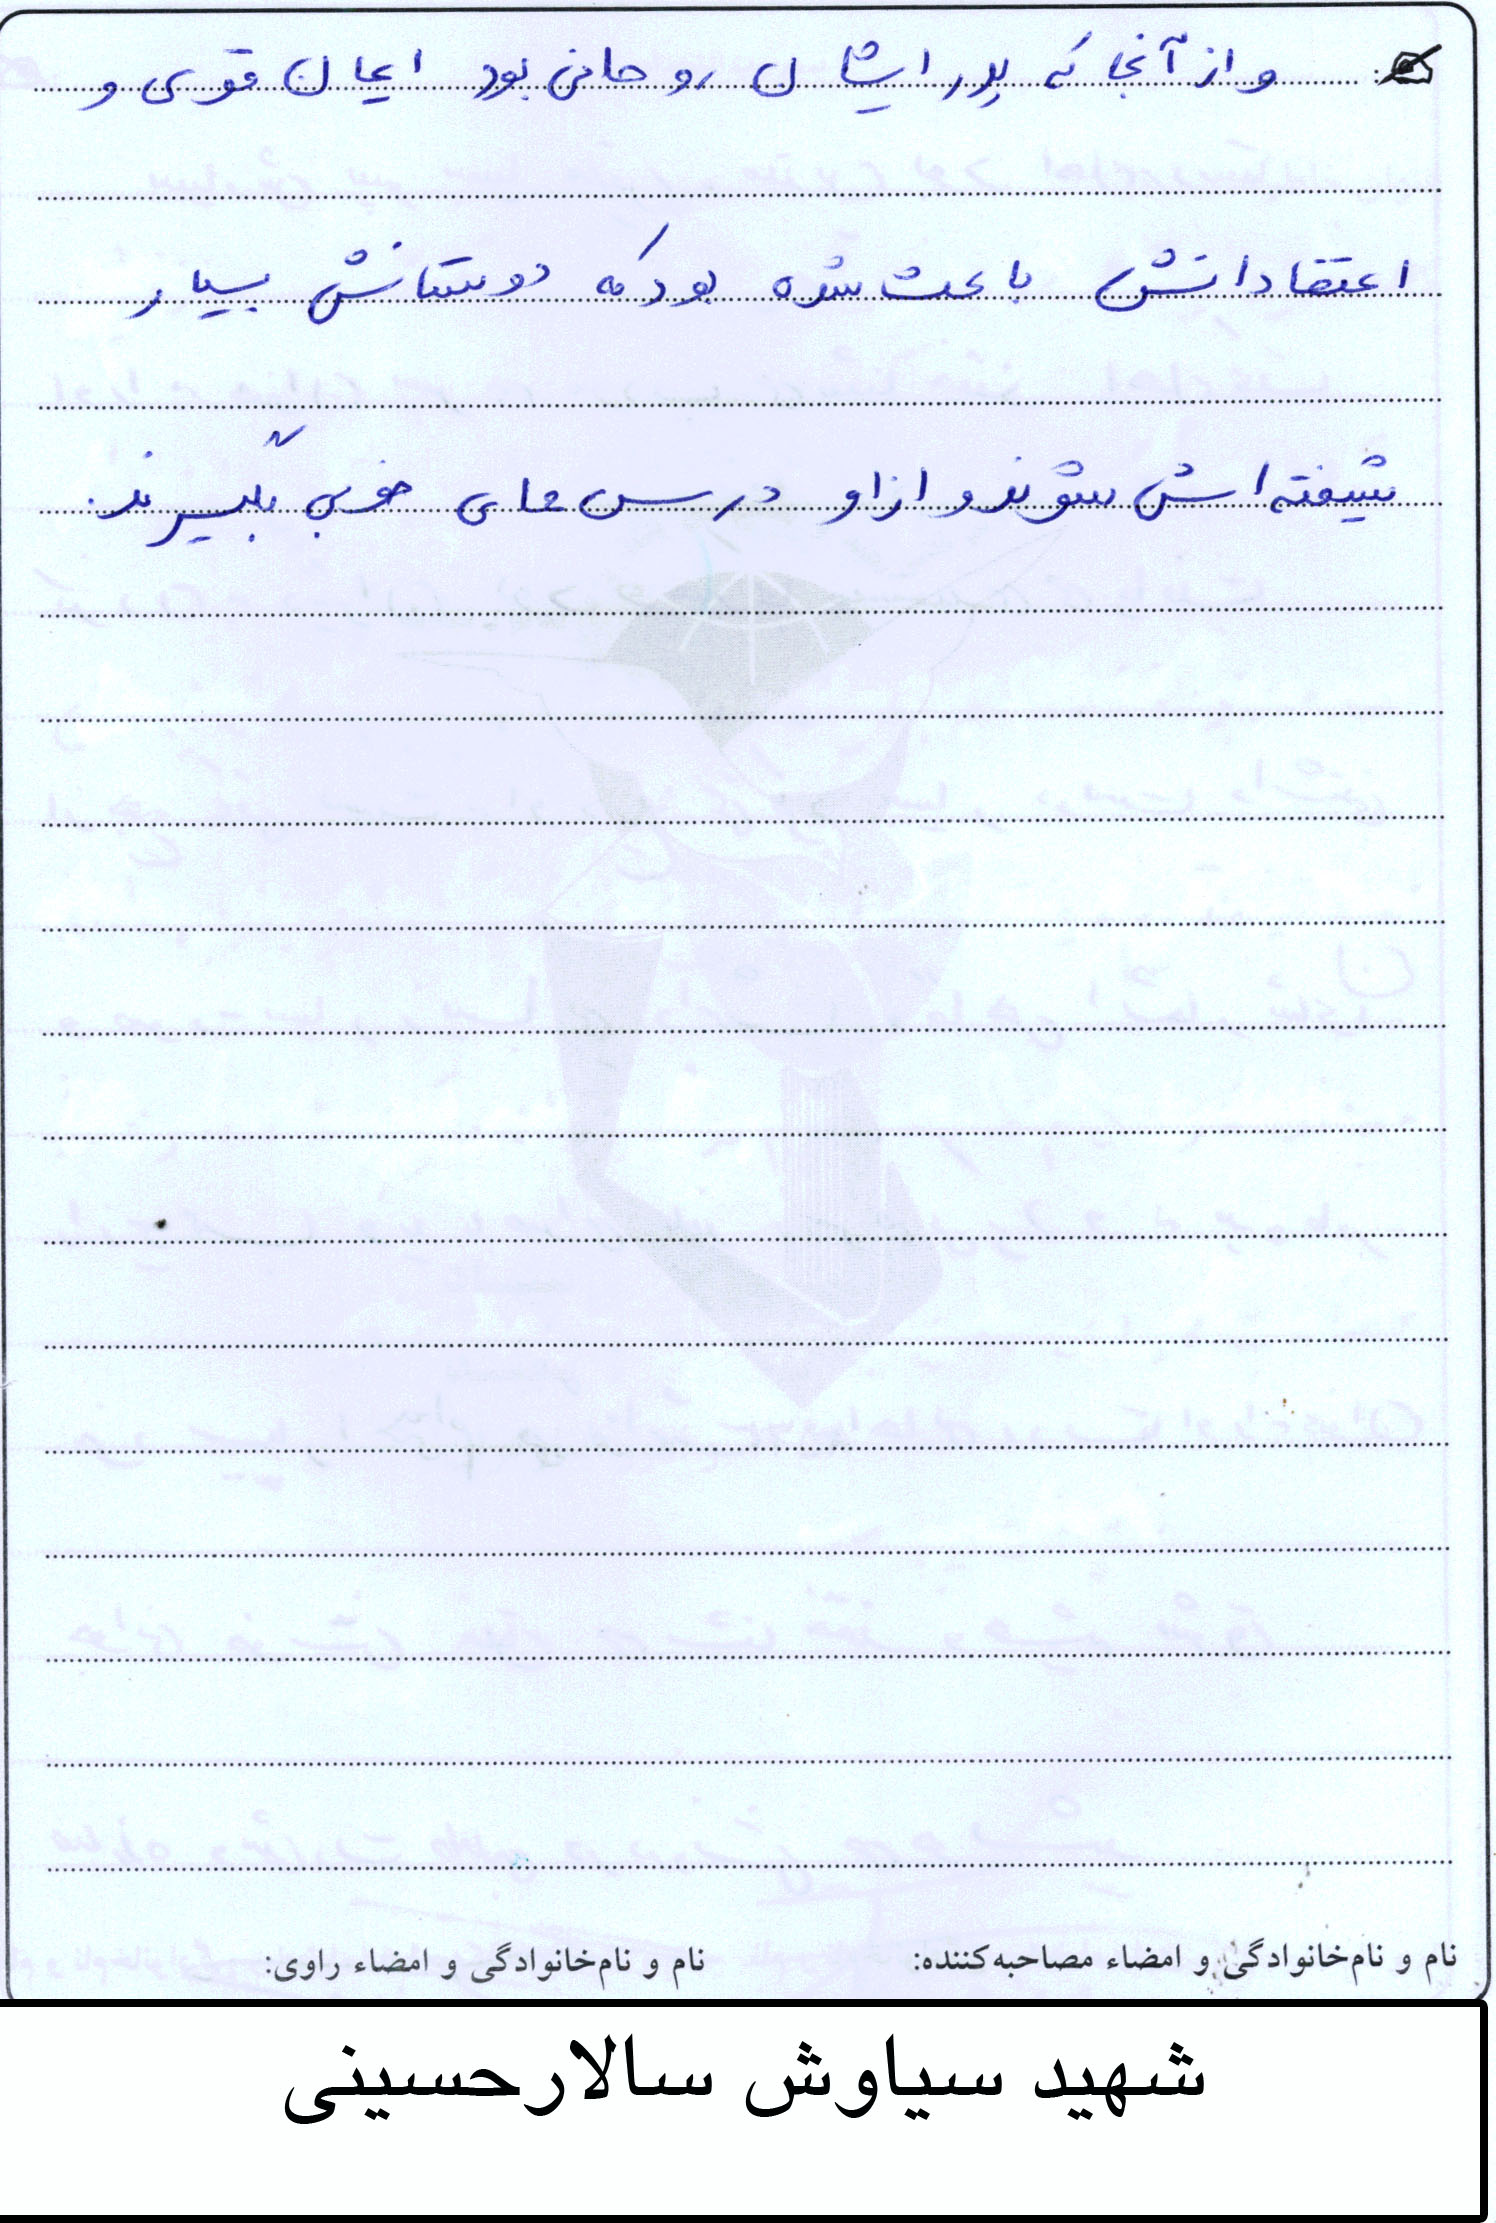 و از آنجا که پدر ایشان روحانی بود ایمان قوی و
اعتقاداتش باعث شده بود که دوستانش بسیار
شیفته‌اش شوند و از او درس های خوبی بگیرند.
نام و نام‌خانوادگی و امضاء مصاحبه‌کننده: نام و نام‌خانوادگی و امضاء راوی:
شهید سیاوش سالارحسینی